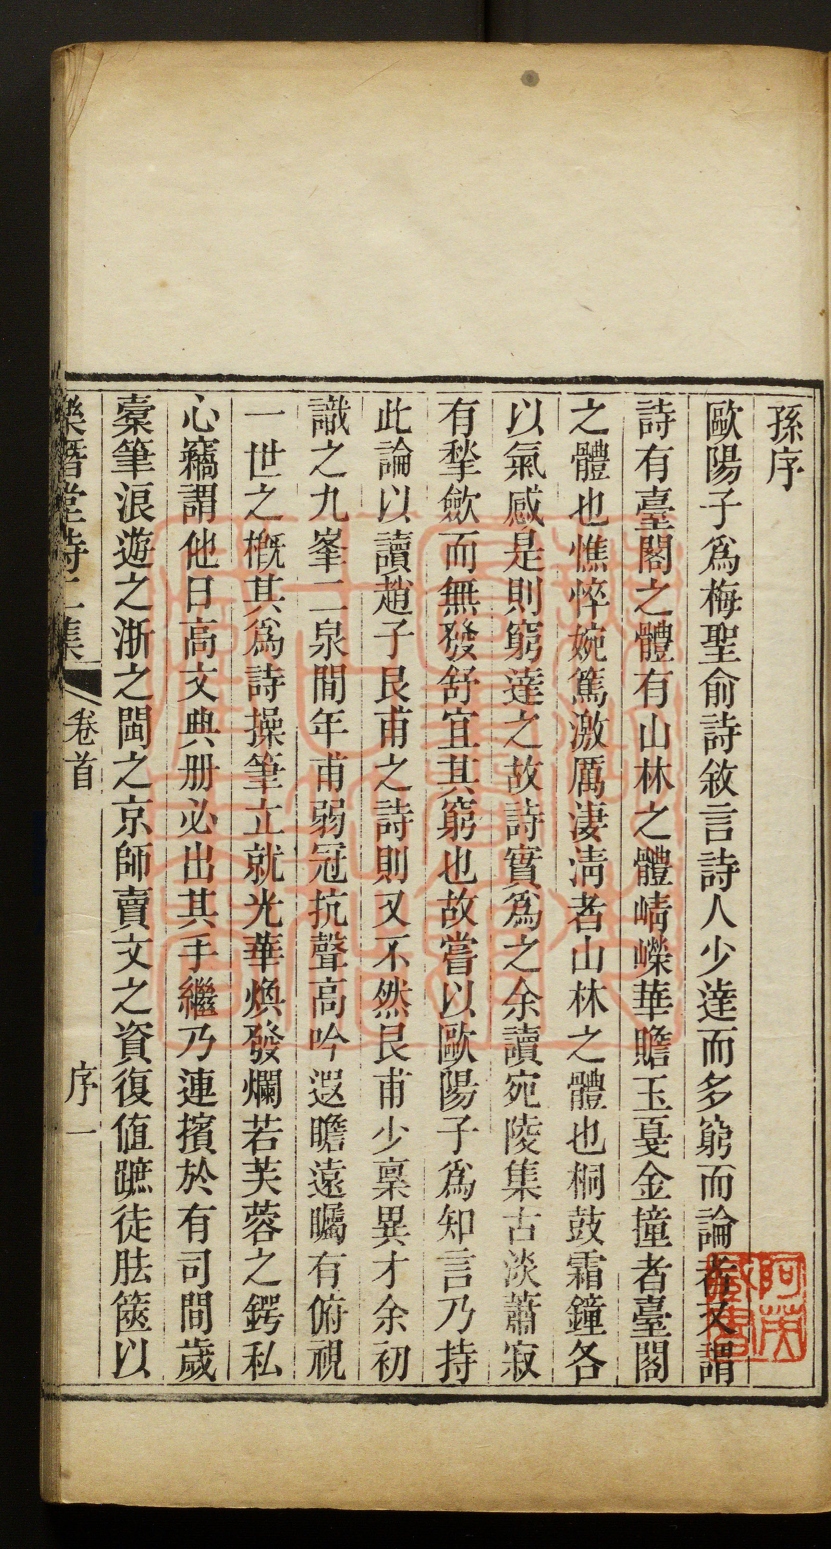 孫序
歐陽子爲梅聖俞詩敘言詩人少達而多窮而論者又謂
詩有臺閣之體有山林之體崝嶸華贍玉戞金撞者臺閣
之體也憔悴婉篤激厲淒淸者山林之體也桐鼓霜鐘各
以氣感是則窮達之故詩實爲之余讀宛陵集古淡蕭寂
有揫歛而無發舒宜其窮也故嘗以歐陽子爲知言乃持
此論以讀趙子艮甫之詩則又不然艮甫少稟異才余初
識之九峯二泉間年甫弱冠抗聲高吟遐瞻遠矚有俯視
一世之概其爲詩操筆立就光華煥發爛若芙蓉之鍔私
心竊謂他日高文典册必出其手繼乃連擯於有司間歲
槖筆浪遊之浙之閩之京師賣文之資復値蹠徒胠篋以
樂潛堂詩二集
卷首
序一
阿英藏書